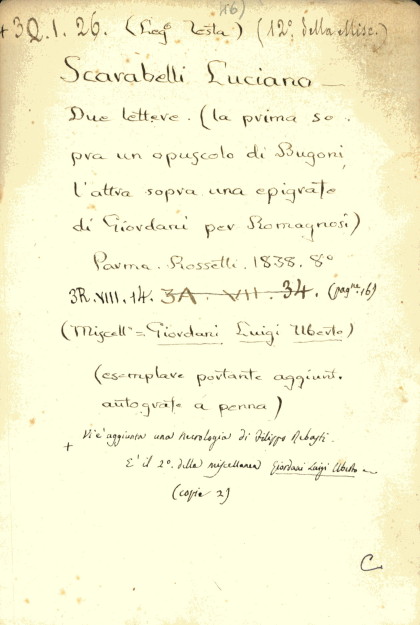 (16)
+ 3Q.1.26. (Leg.e Testa) (12.o della Misc.)
Scarabelli Luciano
Due lettere. (la prima so-
pra un opuscolo di Bugoni,
l'altra sopra una epigrafe
di Giordani per Romagnosi)
Parma. Rossetti. 1838. 8°
3R.VIII.14. 3A.VII.34. (pag.ne 16)
(Miscell.=Giordani Luigi Uberto)
(esemplare portante aggiunt.
autografe a penna)
+ Vi è aggiunta una necrologia di Filippo Rebasti.
E' il 2°. della miscellanea Giordani Luigi Uberto
(copie 2)
C